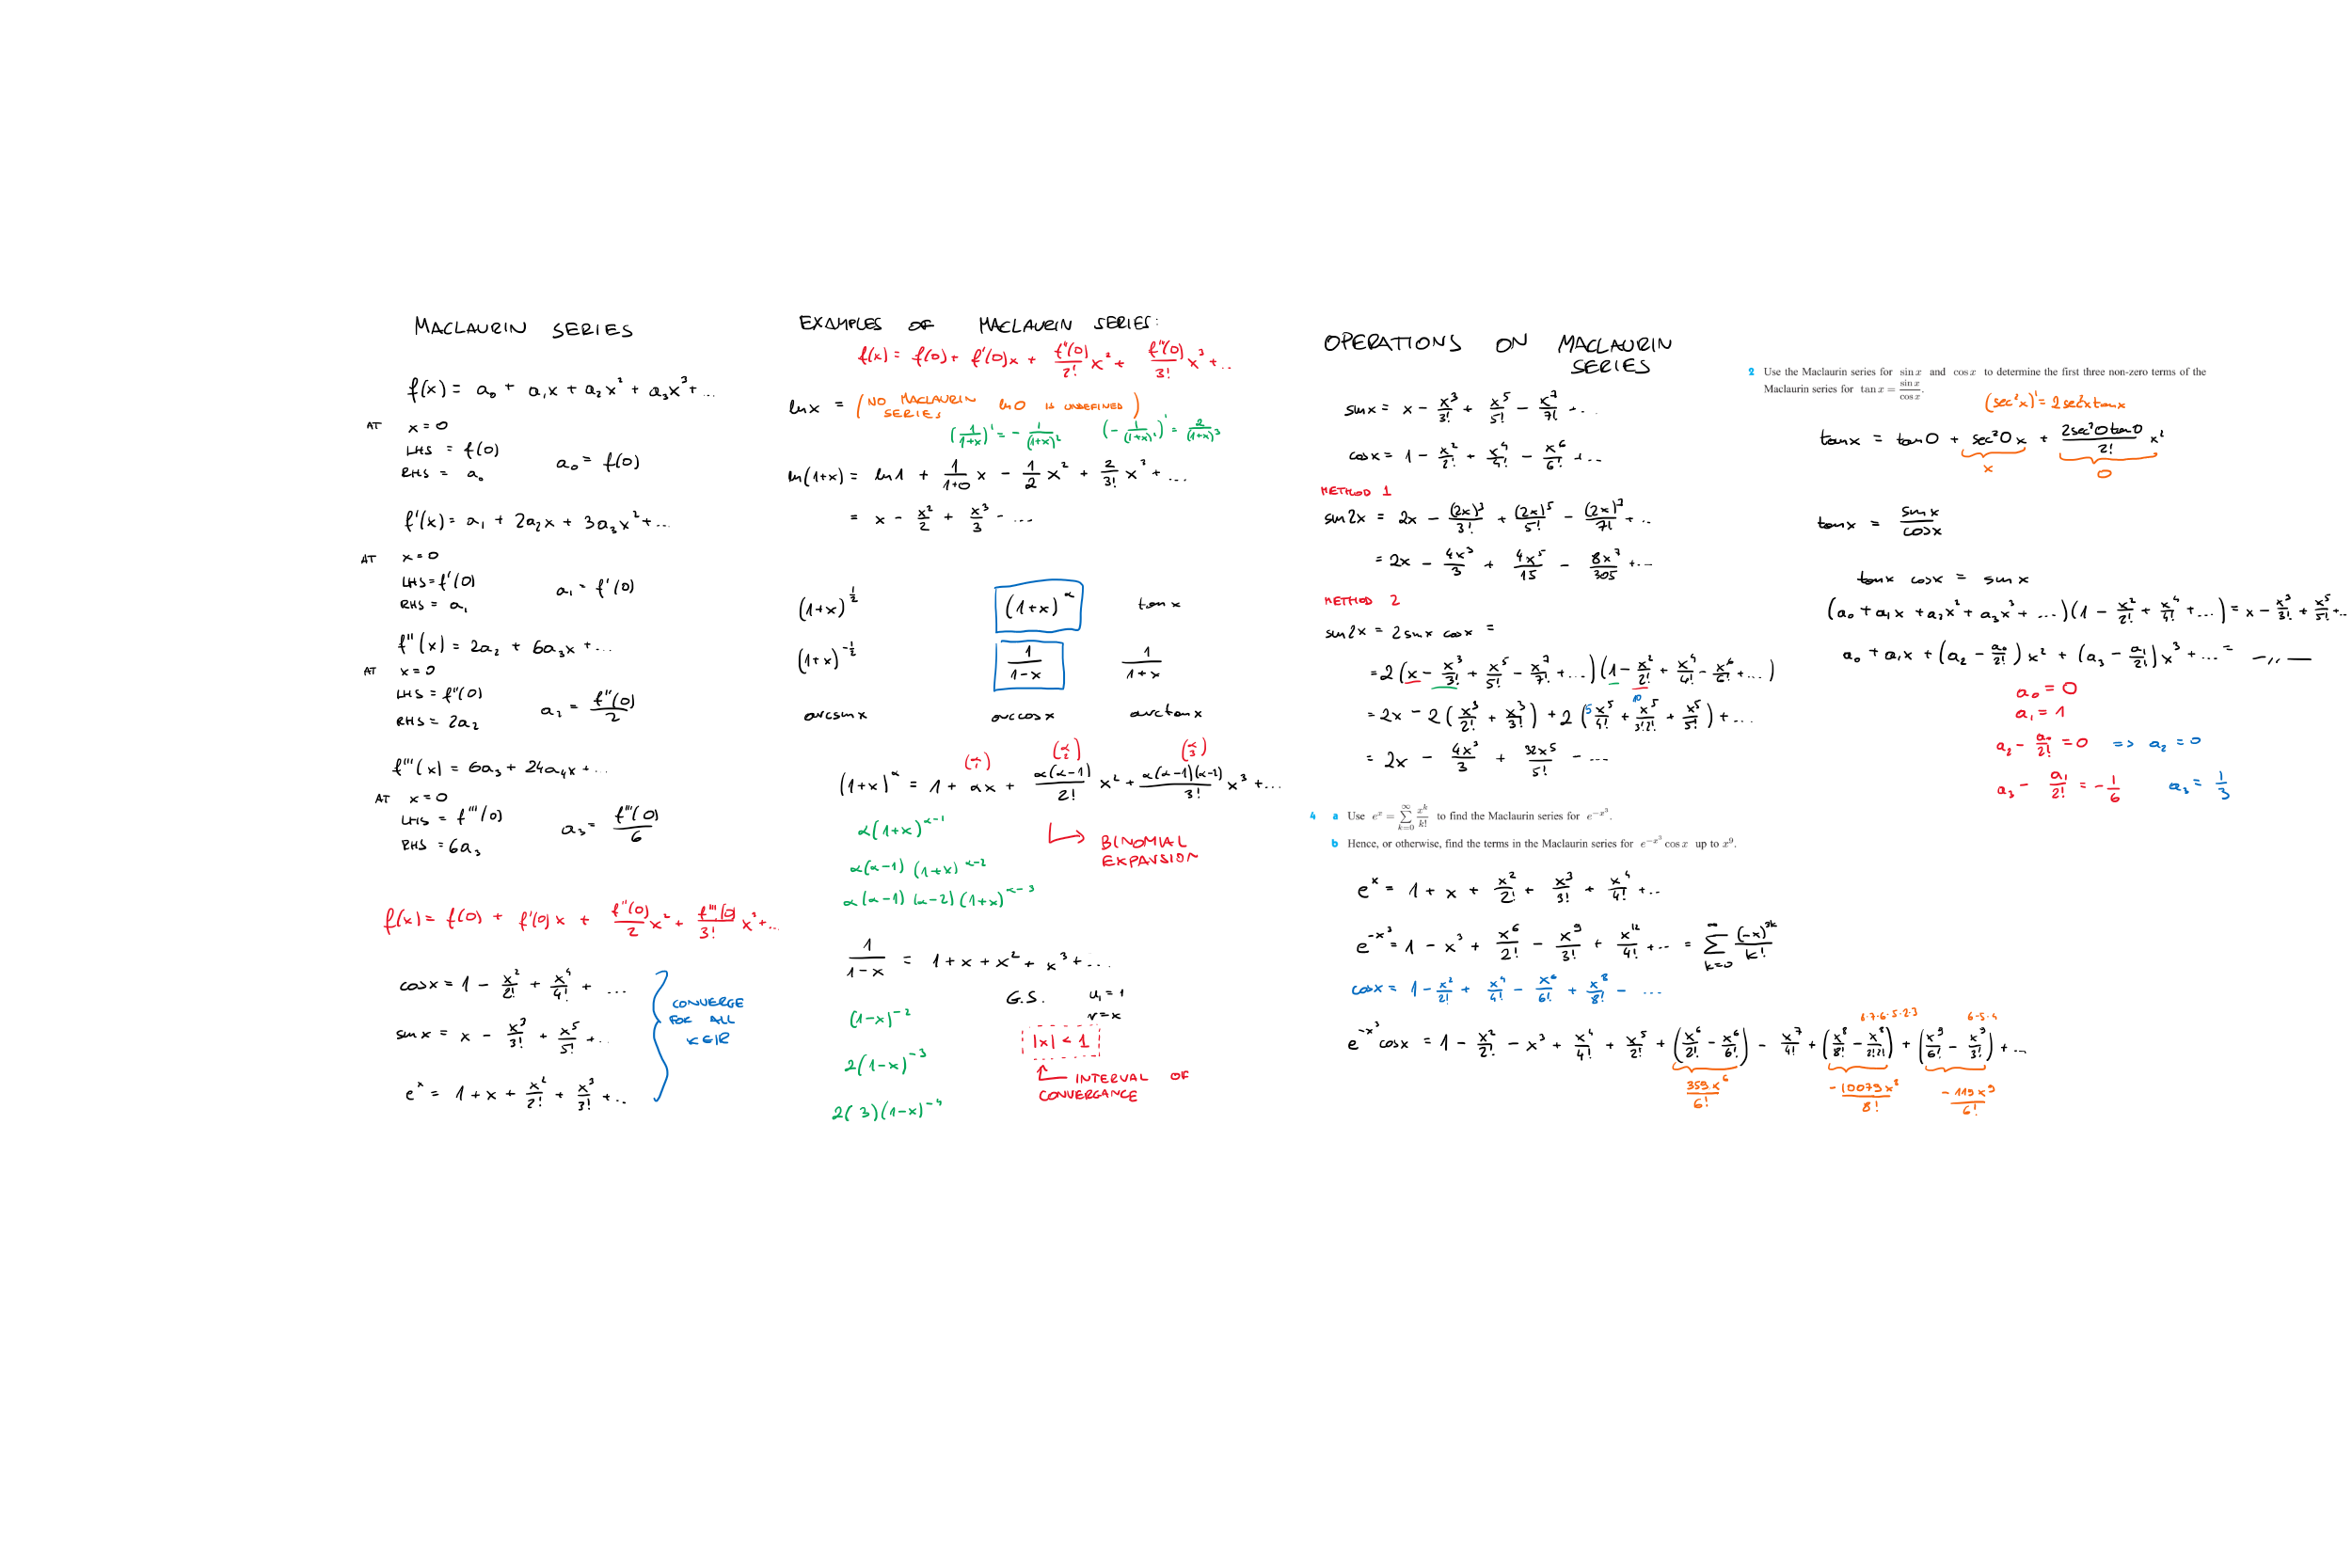 MACLAURIN SERIES
f(x) = a₀ + a₁x + a₂x² + a₃x³ + ...
AT x = 0
LHS = f(0)
RHS = a₀
a₀ = f(0)
f'(x) = a₁ + 2a₂x + 3a₃x² + ...
AT x = 0
LHS = f'(0)
RHS = a₁
a₁ = f'(0)
f''(x) = 2a₂ + 6a₃x + ...
AT x = 0
LHS = f''(0)
RHS = 2a₂
a₂ = f''(0)/2
f'''(x) = 6a₃ + 24a₄x + ...
AT x = 0
LHS = f'''(0)
RHS = 6a₃
a₃ = f'''(0)/6
f(x) = f(0) + f'(0)x + f''(0)/2 x² + f'''(0)/3! x³ + ...
cosx = 1 - x²/2! + x⁴/4! + ...
sinx = x - x³/3! + x⁵/5! + ..
eˣ = 1 + x + x²/2! + x³/3! + ..
CONVERGE
FOR ALL
x∈ℝ
EXAMPLES OF MACLAURIN SERIES:
f(x) = f(0) + f'(0)x + f''(0)/2! x² + f'''(0)/3! x³ + ..
lnx = (NO MACLAURIN SERIES ln0 IS UNDEFINED)
(1/(1+x))' = - 1/(1+x)² (- 1/(1+x)²)' = 2/(1+x)³
ln(1+x) = ln1 + 1/(1+0) x - 1/2 x² + 2/3! x³ + ...
= x - x²/2 + x³/3 - ...
(1+x)^(1/2) (1+x)^α tanx
(1+x)^(-1/2) 1/(1-x) 1/(1+x)
arcsinx arccosx arctanx
(α 1) (α 2) (α 3)
(1+x)^α = 1 + αx + α(α-1)/2! x² + α(α-1)(α-2)/3! x³ + ...
α(1+x)^(α-1)
α(α-1)(1+x)^(α-2)
α(α-1)(α-2)(1+x)^(α-3)
BINOMIAL
EXPANSION
1/(1-x) = 1 + x + x² + x³ + ...
G.S. u₁ = 1
r = x
(1-x)⁻²
2(1-x)⁻³
2(3)(1-x)⁻⁴
|x| < 1
INTERVAL OF
CONVERGANCE
OPERATIONS ON MACLAURIN
SERIES
sinx = x - x³/3! + x⁵/5! - x⁷/7! + ..
cosx = 1 - x²/2! + x⁴/4! - x⁶/6! + ...
METHOD 1
sin2x = 2x - (2x)³/3! + (2x)⁵/5! - (2x)⁷/7! + ..
= 2x - 4x³/3 + 4x⁵/15 - 8x⁷/305 + ...
METHOD 2
sin2x = 2sinx cosx =
= 2(x - x³/3! + x⁵/5! - x⁷/7! + ...)(1 - x²/2! + x⁴/4! - x⁶/6! + ...)
= 2x - 2(x³/2! + x³/3!) + 2(5 x⁵/4! + 10 x⁵/3!2! + x⁵/5!) + ...
= 2x - 4x³/3 + 32x⁵/5! - ...
4 a Use eˣ = ∑_{k=0}^{∞} xᵏ/k! to find the Maclaurin series for e^(-x³).
b Hence, or otherwise, find the terms in the Maclaurin series for e^(-x³) cos x up to x⁹.
eˣ = 1 + x + x²/2! + x³/3! + x⁴/4! + ..
e^(-x³) = 1 - x³ + x⁶/2! - x⁹/3! + x¹²/4! + ... = ∑_{k=0}^{∞} (-x)^(3k)/k!
cosx = 1 - x²/2! + x⁴/4! - x⁶/6! + x⁸/8! - ...
6·7·6·5·2·3 6·5·4
e^(-x³) cosx = 1 - x²/2! - x³ + x⁴/4! + x⁵/2! + (x⁶/2! - x⁶/6!) - x⁷/4! + (x⁸/8! - x⁸/2!2!) + (x⁹/6! - x⁹/3!) + ...
359x⁶/6! -10079x⁸/8! -119x⁹/6!
2 Use the Maclaurin series for sin x and cos x to determine the first three non-zero terms of the
Maclaurin series for tan x = sin x/cos x.
(sec²x)' = 2sec²xtanx
tanx = tan0 + sec²0 x + 2sec²0tan0/2! x²
x 0
tanx = sinx/cosx
tanx cosx = sinx
(a₀ + a₁x + a₂x² + a₃x³ + ...)(1 - x²/2! + x⁴/4! + ...) = x - x³/3! + x⁵/5! + ..
a₀ + a₁x + (a₂ - a₀/2!)x² + (a₃ - a₁/2!)x³ + ... = -,,—
a₀ = 0
a₁ = 1
a₂ - a₀/2! = 0 => a₂ = 0
a₃ - a₁/2! = -1/6 a₃ = 1/3